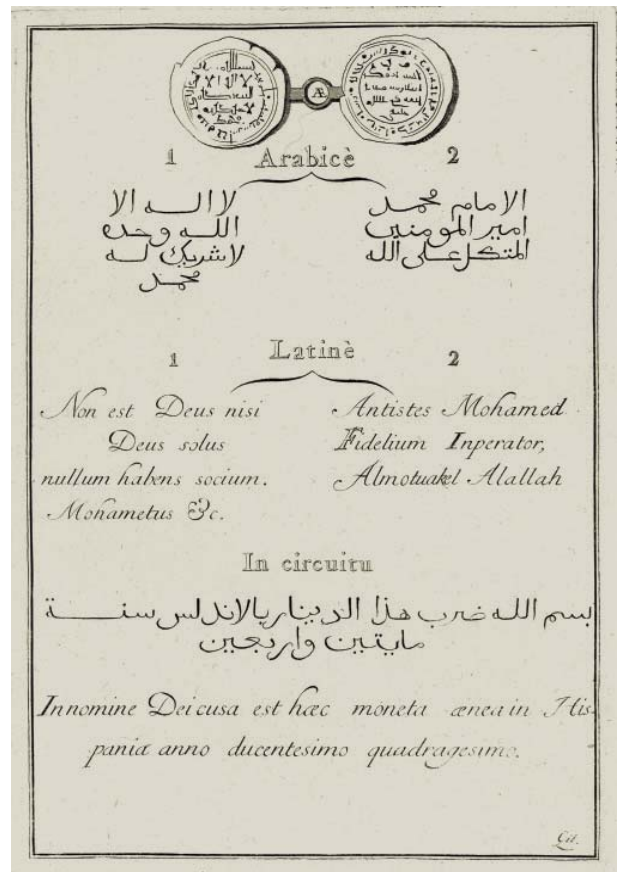 Æ
1
Arabicè
2
لا اله الا
الله وحده
لاشريك له
محمد
الامام محمد
امير المومنين
المتكل على الله
1
Latinè
2
Non est Deus nisi
Deus solus
nullum habens socium.
Mohametus &c.
Antistes Mohamed
Fidelium Inperator,
Almotuakel Alallah
In circuitu
بسم الله ضرب هذا الدينار بالاندلس سنة
مايتين واربعين
In nomine Dei cusa est hæc moneta ænea in His-
pania anno ducentesimo quadragesimo.